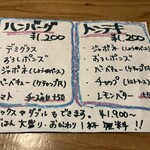 ハンバーグ
¥1,200
・デミグラス
・おろしポン酢
・ジャポネ(しょうゆベース)
・バーベキュー(ケチャップ味)
・トマト チーズ入り +50
トンテキ
¥1,200
・ジャポネ(しょうゆベース)
・おろしポンズ
・バーベキュー(ケチャップ味)
・チャップ
・レモンバター
ックスやダブルもできます。 ¥1,900〜
ごはん 大盛り・おかわり 1杯 無料!!